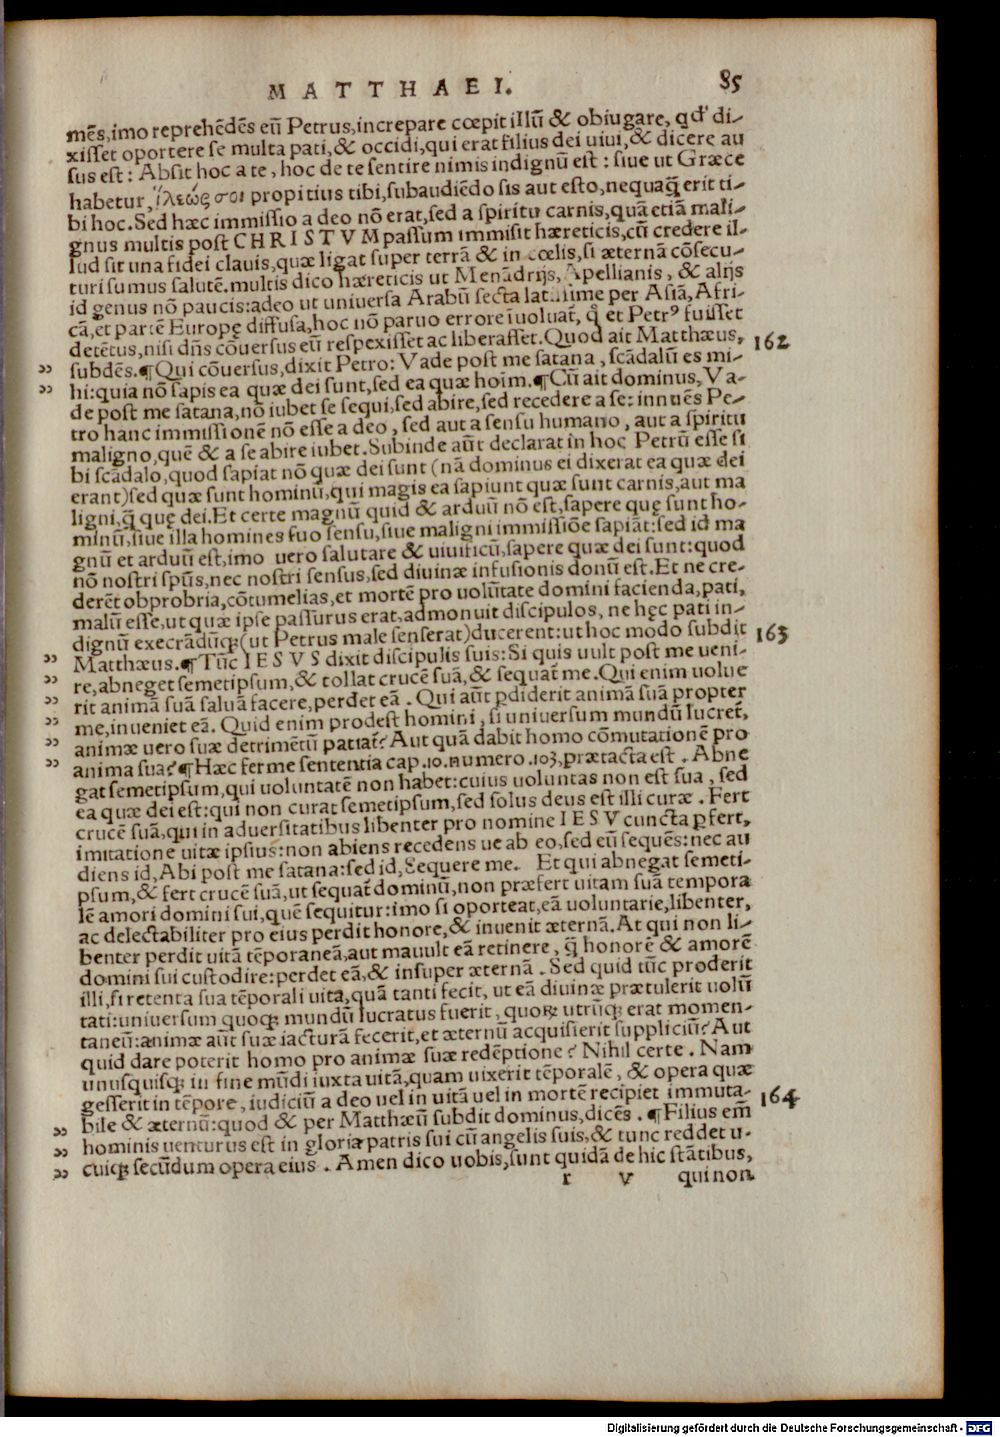 MATTHAEI. 85
mēs,imo reprehēdēs eū Petrus,increpare cœpit illū & obiugare, qđ di-
xisset oportere se multa pati,& occidi,qui erat filius dei uiui,& dicere au
sus est: Absit hoc a te, hoc de te sentire nimis indignū est: siue ut Græce
habetur, ἵλεώς σοι propitius tibi,subaudiēdo sis aut esto,nequaq̄ erit ti-
bi hoc. Sed hæc immissio a deo nō erat,sed a spiritu carnis,quā etiā mali-
gnus multis post CHRISTVM passum immisit hæreticis,cū credere il-
lud sit una fidei clauis,quæ ligat super terrā & in cœlis,si æternā cōsecu-
turi sumus salutē.multis dico hæreticis ut Menādrijs, Apellianis, & alijs
id genus nō paucis:adeo ut uniuersa Arabū secta latissime per Asiā,Afri-
cā,et partē Europę diffusa,hoc nō paruo errore īuoluat, q̄ et Petrꝰ fuisset
detētus,nisi dn̄s cōuersus eū respexisset ac liberasset.Quod ait Matthæus, 162
„ subdēs.¶Qui cōuersus,dixit Petro: Vade post me satana, scādalū es mi-
„ hi:quia nō sapis ea quæ dei sunt,sed ea quæ hoīm.¶Cū ait dominus,Va-
de post me satana,nō iubet se sequi,sed abire,sed recedere a se: innuēs Pe-
tro hanc immissionē nō esse a deo, sed aut a sensu humano, aut a spiritu
maligno,quē & a se abire iubet.Subinde aūt declarat in hoc Petrū esse si
bi scādalo,quod sapiat nō quæ dei sunt (nā dominus ei dixerat ea quæ dei
erant)sed quæ sunt hominū,qui magis ea sapiunt quæ sunt carnis,aut ma
ligni,q̄ quę dei.Et certe magnū quid & arduū nō est,sapere quę sunt ho-
minū,siue illa homines suo sensu,siue maligni immissiōe sapiāt:sed id ma
gnū et arduū est,imo uero salutare & uiuificū,sapere quæ dei sunt:quod
nō nostri spūs,nec nostri sensus,sed diuinæ infusionis donū est.Et ne cre-
derēt obprobria,cōtumelias,et mortē pro uolūtate domini facienda,pati,
malū esse,ut quæ ipse passurus erat,admonuit discipulos, ne hęc pati in-
dignū execrādūqꝫ(ut Petrus male senserat)ducerent:ut hoc modo subdit 163
„ Matthæus.¶Tūc IESVS dixit discipulis suis: Si quis uult post me ueni-
„ re,abneget semetipsum,& tollat crucē suā,& sequat̄ me.Qui enim uolue
„ rit animā suā saluā facere,perdet eā. Qui aūt ꝑdiderit animā suā propter
„ me,inueniet eā. Quid enim prodest homini, si uniuersum mundū lucret̄,
„ animæ uero suæ detrimētū patiat̄? Aut quā dabit homo cōmutationē pro
„ anima sua?¶Hæc ferme sententia cap.10.numero.103,prætacta est. Abne
gat semetipsum,qui uoluntatē non habet:cuius uoluntas non est sua, sed
ea quæ dei est:qui non curat semetipsum,sed solus deus est illi curæ. Fert
crucē suā,qui in aduersitatibus libenter pro nomine IESV cuncta ꝑfert,
imitatione uitæ ipsius:non abiens recedens ue ab eo,sed eū sequēs:nec au
diens id,Abi post me satana:sed id,Sequere me. Et qui abnegat semeti-
psum,& fert crucē suā,ut sequat̄ dominū,non præfert uitam suā tempora
lē amori domini sui,quē sequitur:imo si oporteat,eā uoluntarie,libenter,
ac delectabiliter pro eius perdit honore,& inuenit æternā.At qui non li-
benter perdit uitā tēporaneā,aut mauult eā retinere, q̄ honorē & amorē
domini sui custodire:perdet eā,& insuper æternā. Sed quid tūc proderit
illi,si retenta sua tēporali uita,quā tanti fecit, ut eā diuinæ prætulerit uolū
tati:uniuersum quoqꝫ mundū lucratus fuerit, quoꝝ utrūqꝫ erat momen-
taneū:animæ aūt suæ iacturā fecerit,et æternū acquisierit suppliciū? Aut
quid dare poterit homo pro animæ suæ redēptione? Nihil certe. Nam
unusquisqꝫ in fine mūdi iuxta uitā,quam uixerit tēporalē, & opera quæ
gesserit in tēpore, iudiciū a deo uel in uitā uel in mortē recipiet immuta- 164
„ bile & æternū:quod & per Matthæū subdit dominus,dicēs. ¶Filius em̄
„ hominis uenturus est in gloria patris sui cū angelis suis,& tunc reddet u-
„ cuiqꝫ secūdum opera eius. Amen dico uobis,sunt quidā de hic stātibus,
r v qui non
Digitalisierung gefördert durch die Deutsche Forschungsgemeinschaft - DFG